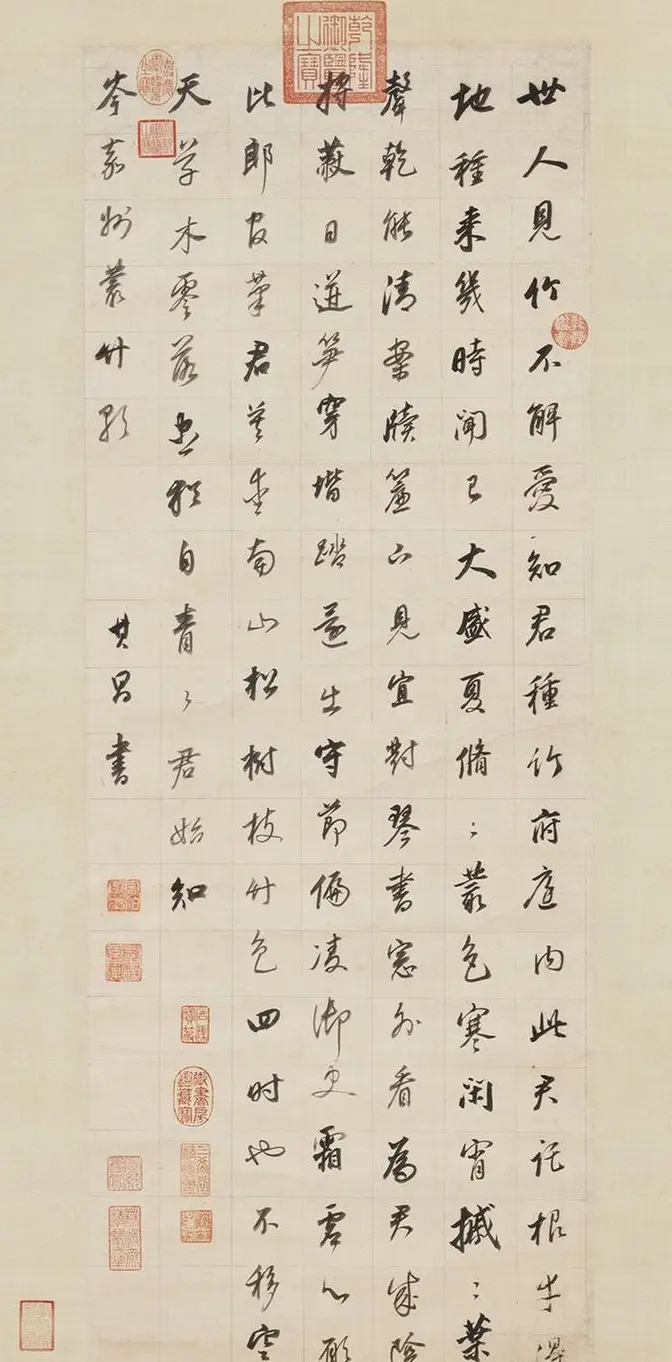 乾隆御覽之寶
世人見竹不解愛知君種竹府庭内此君託根幸得
地種來幾時聞已大盛夏翛々叢色寒閑宵摵々葉
聲乾能清案牘簾下見宜對琴書窓外看為君成陰
將蔽日迸筍穿堦踏還出守節偏凌御史霜虛心願
比郎官筆君莫愛南山松樹枝竹色四时也不移寒
天草木零落盡猶自青々君始知
岑嘉州叢竹歌
其昌書